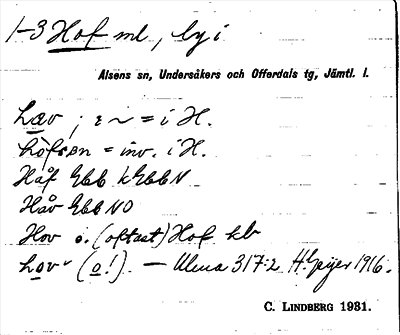 1-3 Hof ml, by i
Alsens sn, Undersåkers och Offerdals tg, Jämtl. l.
hæv ; ɛ ~ = i H.
höfsɘn = inv. i H.
Håf Ebb kEbbN
Håv EbbNO
Hov o. (oftast) Hof kb
hov (o!). — Ulma 317:2 H. Geijer 1916.
C. LINDBERG 1931.